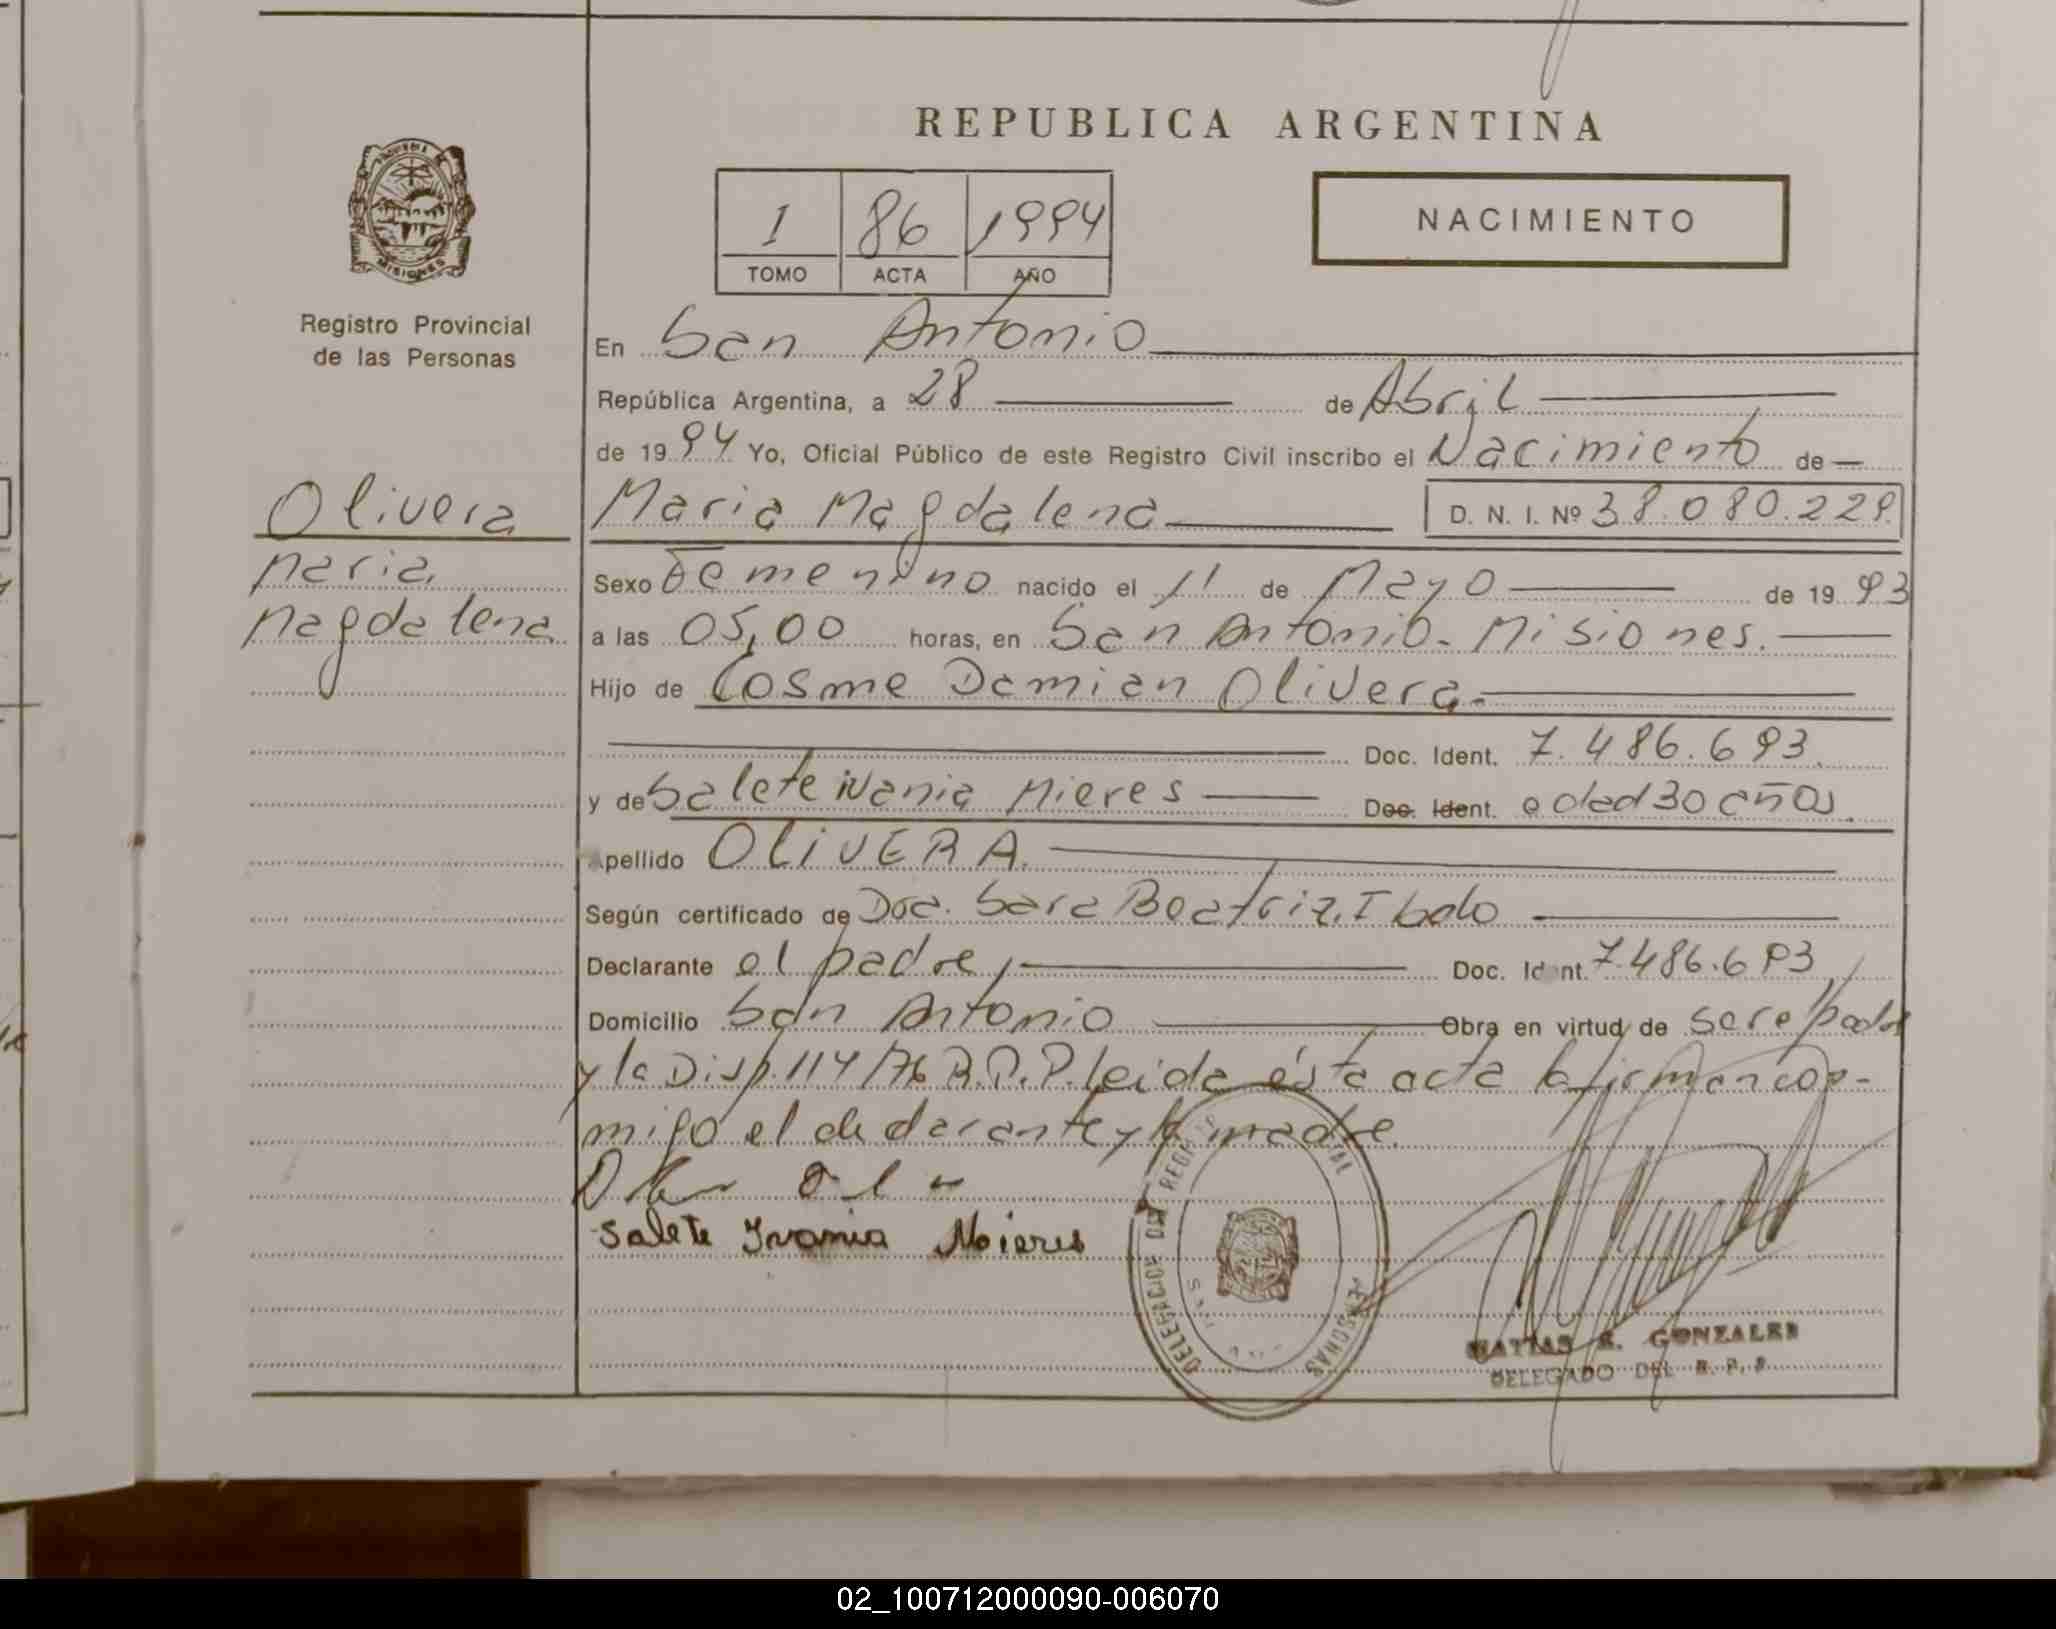 REPUBLICA ARGENTINA
1 86 1994
TOMO ACTA AÑO
NACIMIENTO
MISIONES
Registro Provincial
de las Personas
Olivera
Maria
Magdalena
En San Antonio
República Argentina, a 28 de Abril
de 1994 Yo, Oficial Público de este Registro Civil inscribo el Nacimiento de
Maria Magdalena D. N. I. Nº 38.080.229.
Sexo Femenino nacido el 11 de Mayo de 1993
a las 05,00 horas, en San Antonio - Misiones.
Hijo de Cosme Damian Olivera
Doc. Ident. 7.486.693.
y de Salete ivania Mieres Doc. Ident. edad 30 años.
Apellido OLiVERA.
Según certificado de Doc. Sara Beatriz. Ibalo
Declarante el padre, Doc. Ident. 7.486.693
Domicilio San Antonio Obra en virtud de ser el padre
y la Disp. 114/76 R.P.P. leida ésta acta la firman con-
migo el declarante y la madre.
Salete Ivania Moieres
DELEGACION DEL REGISTRO PERSONAS
MATIAS R. GONZALES
DELEGADO DEL R. P. P.
02_100712000090-006070